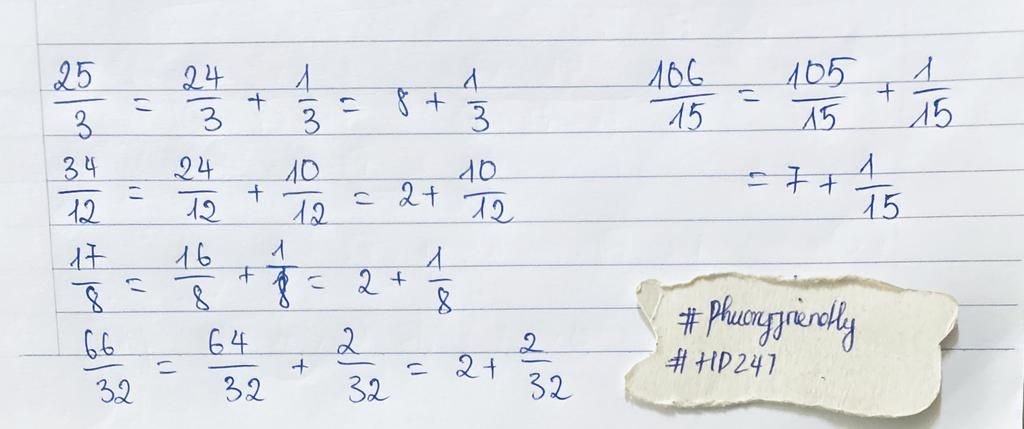 25/3 = 24/3 + 1/3 = 8 + 1/3
34/12 = 24/12 + 10/12 = 2 + 10/12
17/8 = 16/8 + 1/8 = 2 + 1/8
66/32 = 64/32 + 2/32 = 2 + 2/32
106/15 = 105/15 + 1/15
= 7 + 1/15
# Phuongfriendly
# HD247